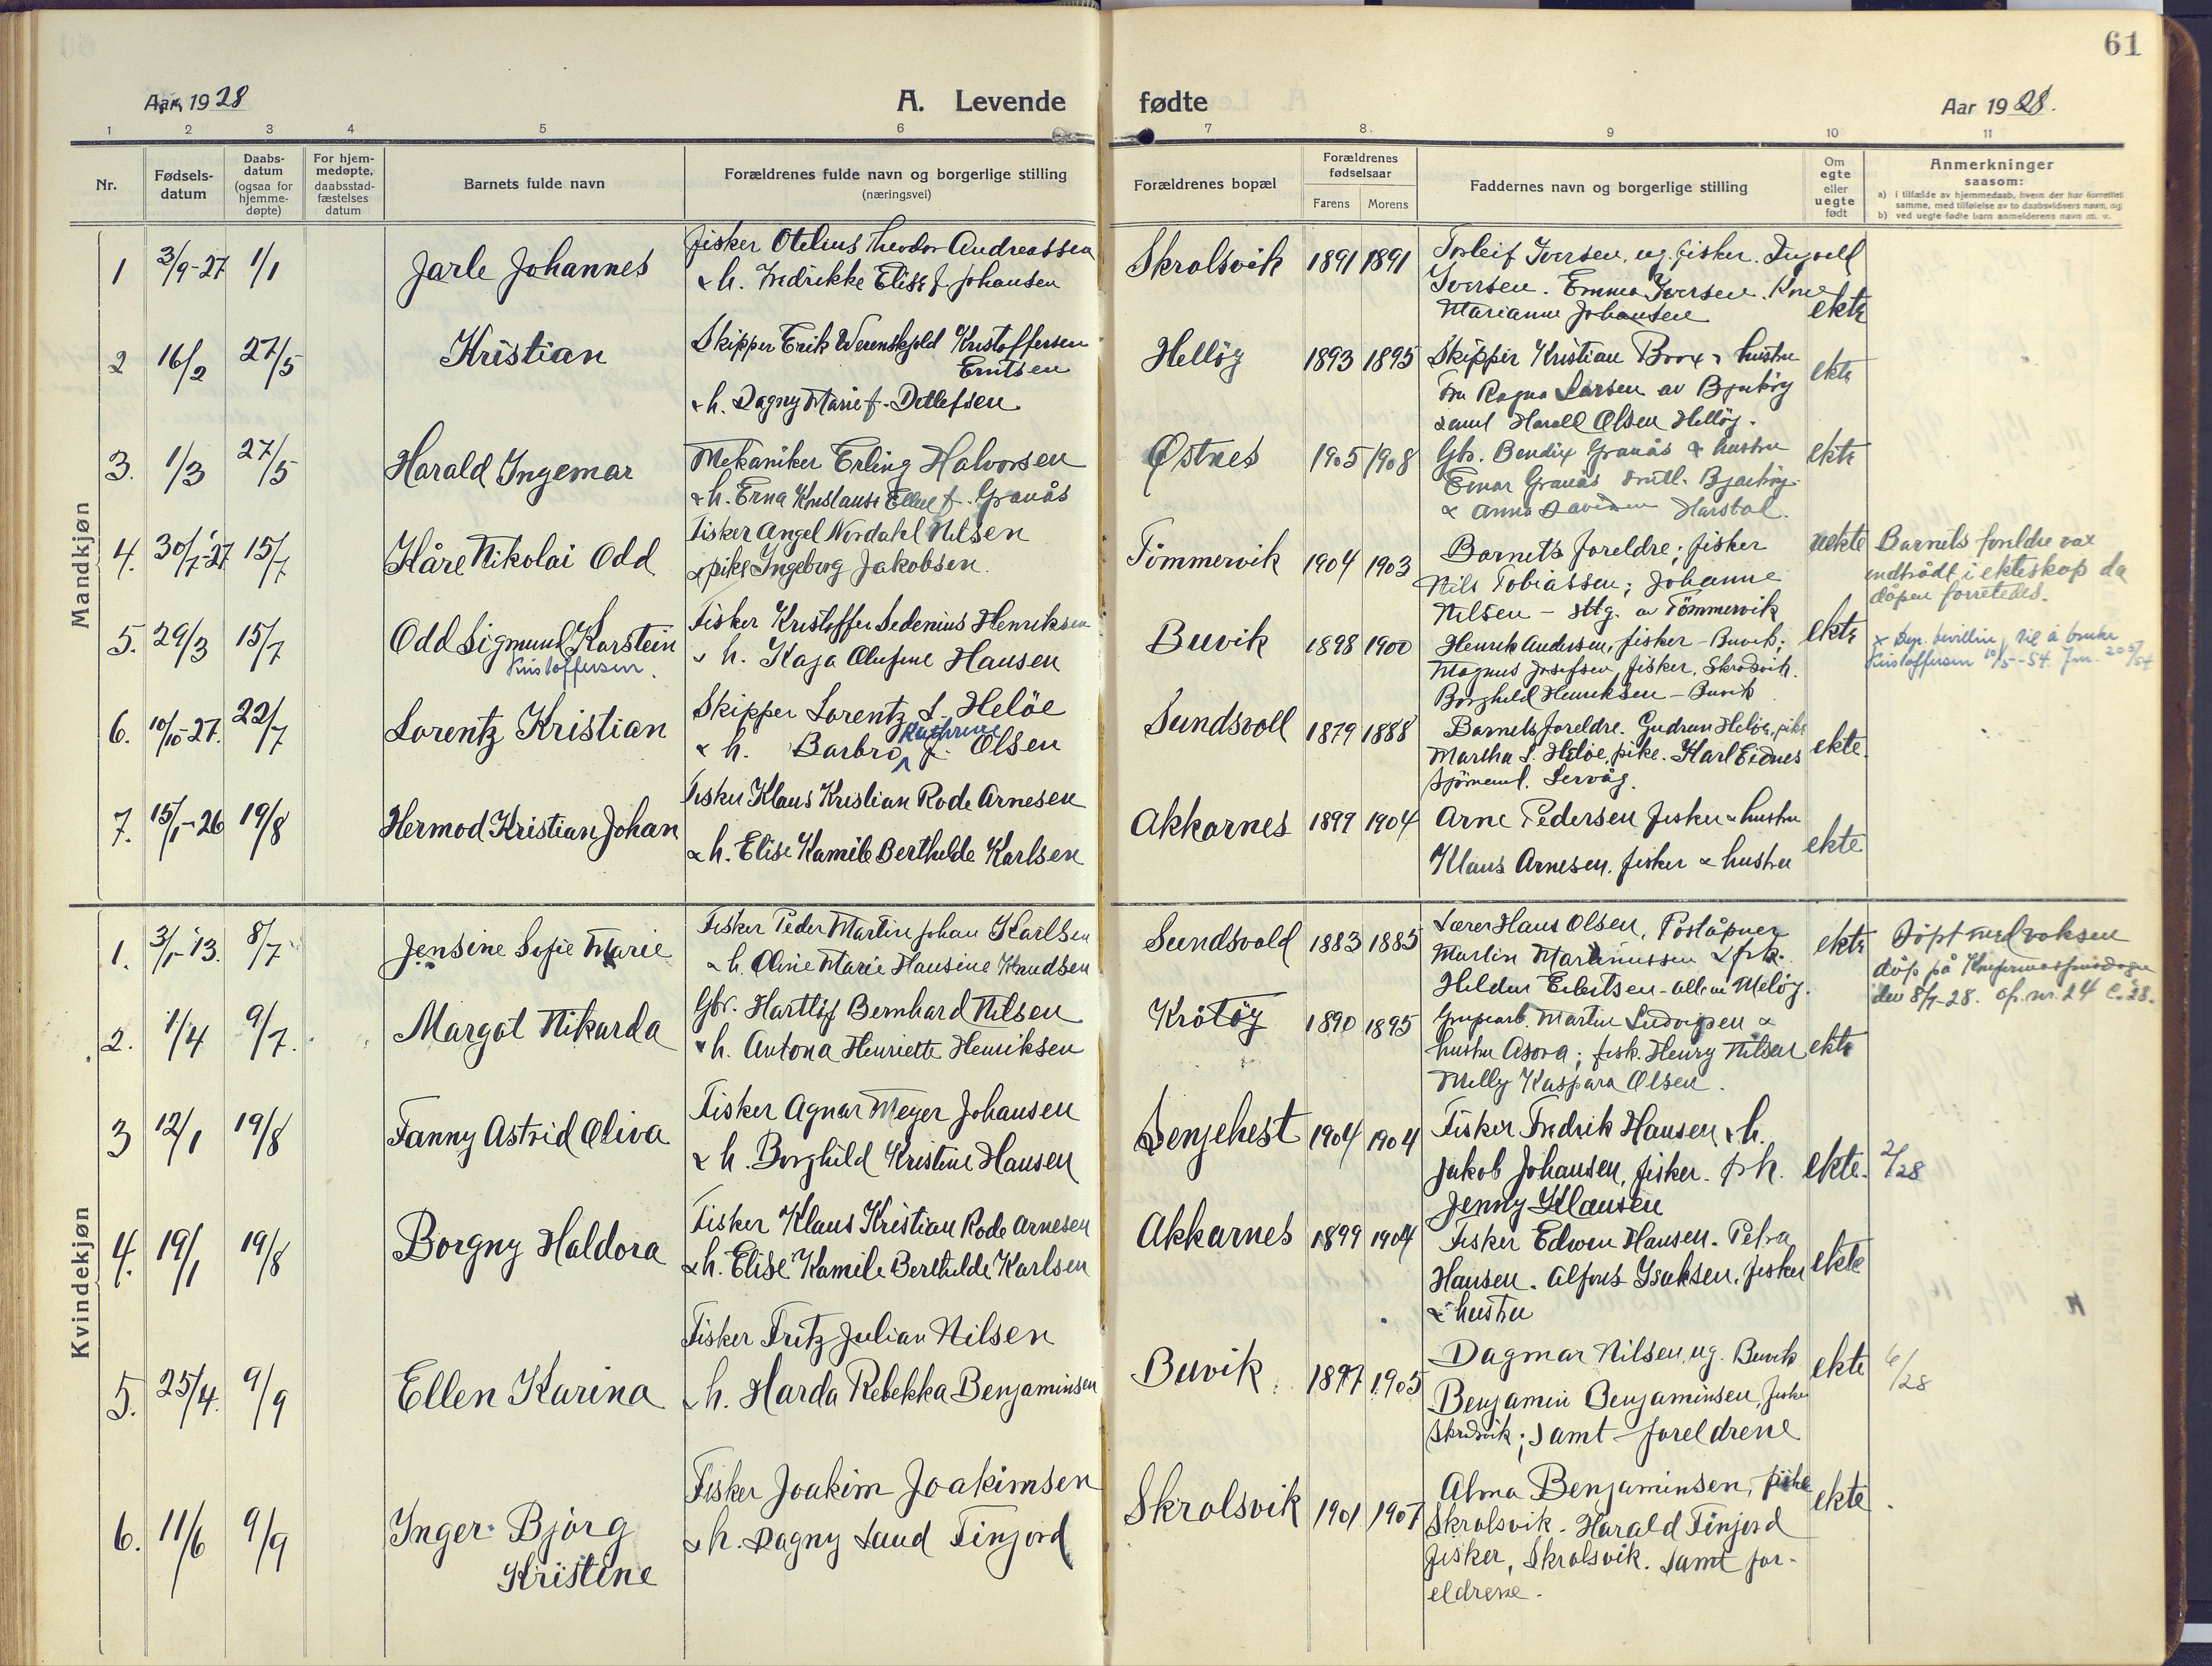 61
Aar 1928
A. Levende fødte
Aar 1928.
1 2 3 4 5 6 7 8. 9 10 11
Nr.
Fødsels-
datum
Daabs-
datum
(ogsaa for
hjemme-
døpte)
For hjem-
medøpte,
daabsstad-
fæstelses
datum
Barnets fulde navn
Forældrenes fulde navn og borgerlige stilling
(næringsvei)
Forældrenes bopæl
Forældrenes
fødselsaar
Farens Morens
Faddernes navn og borgerlige stilling
Om
egte
eller
uegte
født
Anmerkninger
saasom:
a) i tilfælde av hjemmedaab, hvem der har forrettet
samme, med tilføielse av to daabsvidners navn, og
b) ved uegte fødte barn anmelderens navn m. v.
Mandkjøn
1 3/9-27 1/1 Jarle Johannes
Fisker Otelius Theodor Andreassen
& h. Fredrikke Elise f. Johansen
Skrolsvik 1891 1891
Torleif Iversen, ug. fisker. Ingvell
Iversen. Emma Iversen. Kone
Marianne Johansen
ekte
2 16/2 27/5 Kristian
Skipper Erik Werenskjold Kristoffersen
Erntsen
& h. Dagny Marie f. Detlefsen
Hellöy 1893 1895
Skipper Kristian Brox & hustru
Fru Ragna Larsen av Bjarköy
samt Harall Olsen Hellöy.
ekte
3. 1/3 27/5 Harald Ingemar
Mekaniker Erling Halvorsen
& h. Erna Konstanse Elline f. Granås
Østnes 1905 1908
Gbr. Bendix Granås & hustru
Einar Granås Bjarköy
& Anna Davidsen Harstad.
ekte
4. 30/7-27 15/7 Kåre Nikolai Odd
Fisker Angel Nordahl Nilsen
& pike Ingeborg Jakobsen.
Tömmervik 1904 1903
Barnets foreldre; fisker
Nils Tobiassen; Johanne
Nilsen - av Tömmervik
uekte
Barnets foreldre var
indtrådt i ekteskap da
dåpen forretedes.
5. 29/3 15/7 Odd Sigmund Karstein
Kristoffersen.
Fisker Kristoffer Sedenius Henriksen
& h. Kaja Olufine Hansen
Buvik 1898 1900
Henrik Andersen, fisker - Buvik;
Magnus Josefsen, fisker, Skrolsvik.
Borghild Henriksen - Buvik
ekte
x Dep. bevilling til å bruke
Kristoffersen 10/5-54.
6. 10/10-27. 22/7 Lorentz Kristian
Skipper Lorentz L. Helöe
& h. Barbro Kathrine f. Olsen
Sundsvoll 1879 1888
Barnets foreldre. Gudrun Helöe, pike
Martha L. Helöe, pike. Karl Eidnes
Sjömand. Lervåg.
ekte.
7. 15/1-26 19/8 Hermod Kristian Johan
Fisker Klaus Kristian Rode Arnesen
& h. Elise Kamile Berthilde Karlsen
Akkarnes 1899 1904
Arne Pedersen fisker & hustru
Klaus Arnesen, fisker & hustru
ekte
Kvindekjøn
1. 3/1-13. 8/7 Jensine Sofie Marie
Fisker Peder Martin Johan Karlsen
& h. Oline Marie Hansine Knudsen
Sundsvold 1883 1885
Lærer Hans Olsen, Poståpner
Martin Martinussen & frk.
Heldur Eilertsen - alle av Melöy.
ekte
Döpt med voksen
dåp på Konfirmasjonsdagen
den 8/7-28. cfr. nr. 24 C. 28.
2. 1/4 9/7. Margot Nikarda
Gbr. Hartlöf Bernhard Nilsen
& h. Antona Henriette Henriksen
Krötöy 1890 1895
Grupearb. Martin Ludvigsen &
hustru Asora; fisk. Henry Nilsen
Milly Kaspara Olsen.
ekte
3 12/1 19/8 Fanny Astrid Oliva
Fisker Agnar Meyer Johansen
& h. Borghild Kristine Hansen
Senjehest 1904 1904
Fisker Fredrik Hansen & h.
Jakob Johansen, fisker. frk.
Jenny Klausen
ekte.
2/28
4. 19/1 19/8 Borgny Haldora
Fisker Klaus Kristian Rode Arnesen
& h. Elise Kamile Berthilde Karlsen
Akkarnes 1899 1904
Fisker Edvin Hansen. Petra
Hansen. Alfons Isaksen, fisker
& hustru
ekte
5. 25/4. 9/9 Ellen Karina
Fisker Fritz Julian Nilsen
& h. Harda Rebekka Benjaminsen
Buvik 1897 1905
Dagmar Nilsen, ug. Buvik
Benjamin Benjaminsen, fisker
Skrolsvik; samt foreldrene
ekte
6/28
6. 11/6 9/9 Inger Bjorg
Kristine
Fisker Joakim Joakimsen
& h. Dagny Laud Finjord
Skrolsvik 1901 1907
Alma Benjaminsen, pike
Skrolsvik. Harald Finjord
fisker, Skrolsvik. samt for-
eldrene.
ekte